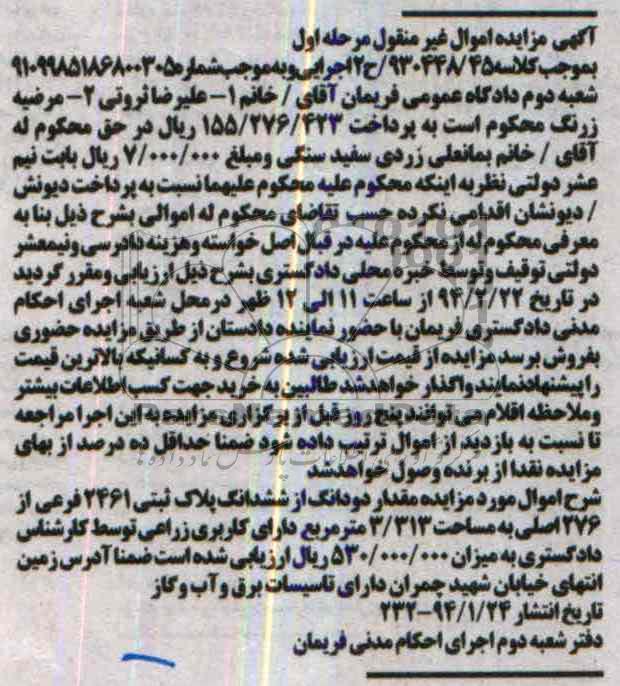 آگهی مزایده اموال غیر منقول مرحله اول
بموجب کلاسه ۹۳۰۴۴۸/۴۵/ح۲ اجرایی و به موجب شماره ۹۱۰۹۹۸۵۱۸۶۸۰۰۳۰۵
شعبه دوم دادگاه عمومی فریمان آقای / خانم ۱- علیرضا ثروتی ۲- مرضیه
زرنگ محکوم است به پرداخت ۱۵۵/۲۷۶/۴۲۳ ریال در حق محکوم له
آقای / خانم بمانعلی زردی سفید سنگی ومبلغ ۷/۰۰۰/۰۰۰ ریال بابت نیم
عشر دولتی نظر به اینکه محکوم علیه محکوم علیهما نسبت به پرداخت دیونش
/ دیونشان اقدامی نکرده حسب تقاضای محکوم له اموالی بشرح ذیل بنا به
معرفی محکوم له از محکوم علیه در قبال اصل خواسته وهزینه دادرسی ونیمعشر
دولتی توقیف وتوسط خبره محلی دادگستری بشرح ذیل ارزیابی ومقرر گردید
در تاریخ ۹۴/۲/۲۲ از ساعت ۱۱ الی ۱۲ ظهر در محل شعبه اجرای احکام
مدنی دادگستری فریمان با حضور نماینده دادستان از طریق مزایده حضوری
بفروش برسد مزایده از قیمت ارزیابی شده شروع و به کسانیکه بالاترین قیمت
را پیشنهاد نمایند واگذار خواهد شد طالبین به خرید جهت کسب اطلاعات بیشتر
وملاحظه اقلام می توانند پنج روز قبل از برگزاری مزایده به این اجرا مراجعه
تا نسبت به بازدید از اموال ترتیب داده شود ضمنا حداقل ده درصد از بهای
مزایده نقدا از برنده وصول خواهد شد
شرح اموال مورد مزایده مقدار دودانگ از ششدانگ پلاک ثبتی ۲۴۶۱ فرعی از
۲۷۶ اصلی به مساحت ۳/۳۱۳ متر مربع دارای کاربری زراعی توسط کارشناس
دادگستری به میزان ۵۳۰/۰۰۰/۰۰۰ ریال ارزیابی شده است ضمنا آدرس زمین
انتهای خیابان شهید چمران دارای تاسیسات برق و آب و گاز
تاریخ انتشار ۹۴/۱/۲۴-۲۳۲
دفتر شعبه دوم اجرای احکام مدنی فریمان